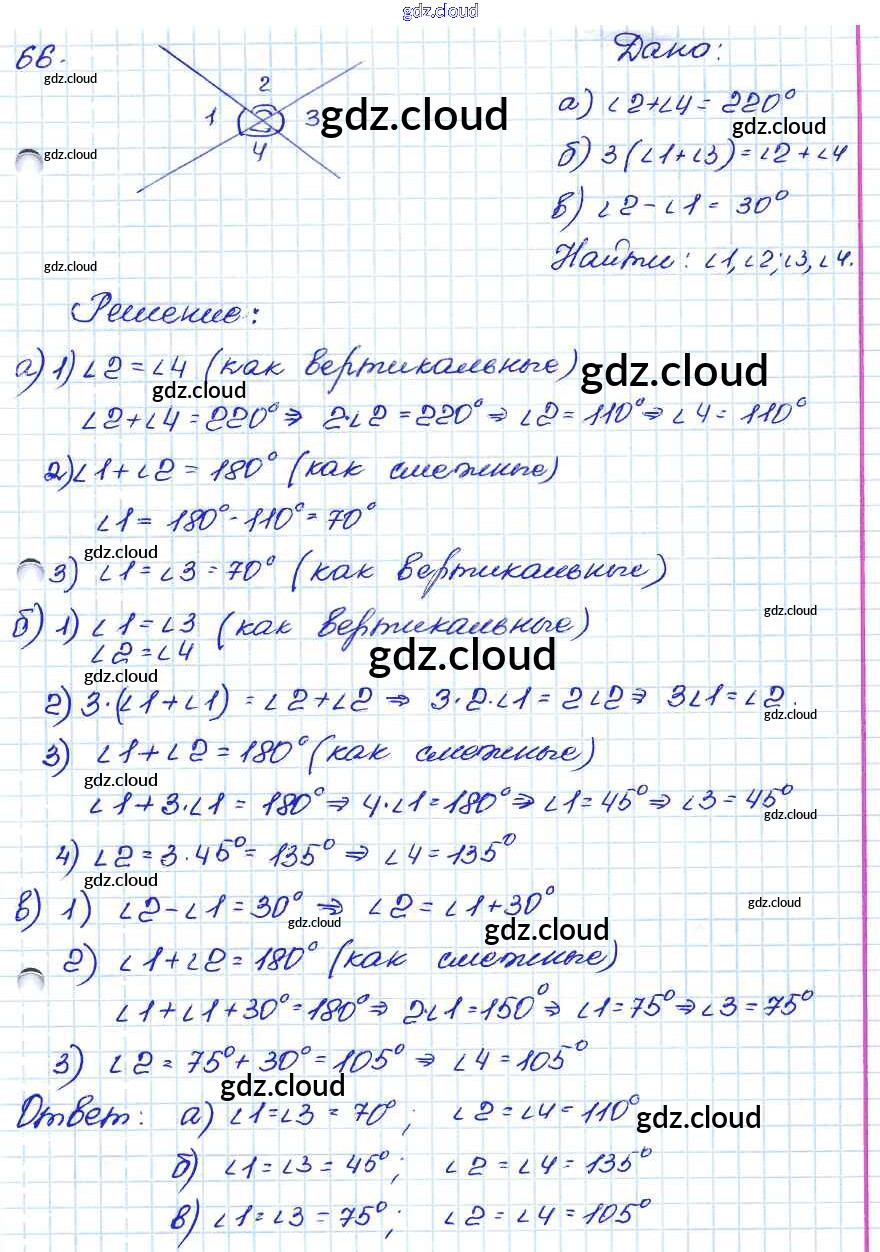 gdz.cloud
66.
gdz.cloud
2
1
3
gdz.cloud
4
gdz.cloud
Дано:
а) ∠2+∠4 = 220°
gdz.cloud
б) 3(∠1+∠3) = ∠2+∠4
в) ∠2 - ∠1 = 30°
Найти: ∠1, ∠2, ∠3, ∠4.
gdz.cloud
Решение:
а) 1) ∠2 = ∠4 (как вертикальные)
gdz.cloud
gdz.cloud
∠2+∠4 = 220° ⇒ 2·∠2 = 220° ⇒ ∠2 = 110° ⇒ ∠4 = 110°
2) ∠1+∠2 = 180° (как смежные)
∠1 = 180° - 110° = 70°
gdz.cloud
3) ∠1 = ∠3 = 70° (как вертикальные)
gdz.cloud
б) 1) ∠1 = ∠3 (как вертикальные)
∠2 = ∠4
gdz.cloud
gdz.cloud
2) 3·(∠1+∠1) = ∠2+∠2 ⇒ 3·2·∠1 = 2∠2 ⇒ 3∠1 = ∠2.
gdz.cloud
3) ∠1+∠2 = 180° (как смежные)
gdz.cloud
∠1+3·∠1 = 180° ⇒ 4·∠1 = 180° ⇒ ∠1 = 45° ⇒ ∠3 = 45°
gdz.cloud
4) ∠2 = 3·45° = 135° ⇒ ∠4 = 135°
gdz.cloud
в) 1) ∠2 - ∠1 = 30° ⇒ ∠2 = ∠1+30°
gdz.cloud
gdz.cloud
gdz.cloud
2) ∠1+∠2 = 180° (как смежные)
∠1+∠1+30° = 180° ⇒ 2∠1 = 150° ⇒ ∠1 = 75° ⇒ ∠3 = 75°
3) ∠2 = 75°+30° = 105° ⇒ ∠4 = 105°
gdz.cloud
Ответ: а) ∠1 = ∠3 = 70°; ∠2 = ∠4 = 110°
gdz.cloud
б) ∠1 = ∠3 = 45°; ∠2 = ∠4 = 135°
в) ∠1 = ∠3 = 75°; ∠2 = ∠4 = 105°